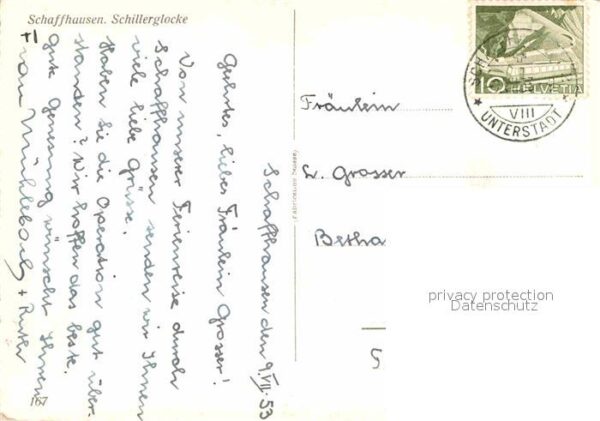 Schaffhausen. Schillerglocke
Schaffhausen den 9.VII.53
Geehrtes, liebes Fräulein Grosser!
Von unserer Ferienreise durch
Schaffhausen senden wir Ihnen
viele liebe Grüsse.
Haben Sie die Operation gut über-
standen? Wir hoffen das beste.
gute Genesung wünscht Ihnen
+ Ruth
167
Fabrication Suisse
10
HELVETIA
VIII
UNTERSTADT
Fräulein
L. Grosser
Betha
5
privacy protection
Datenschutz